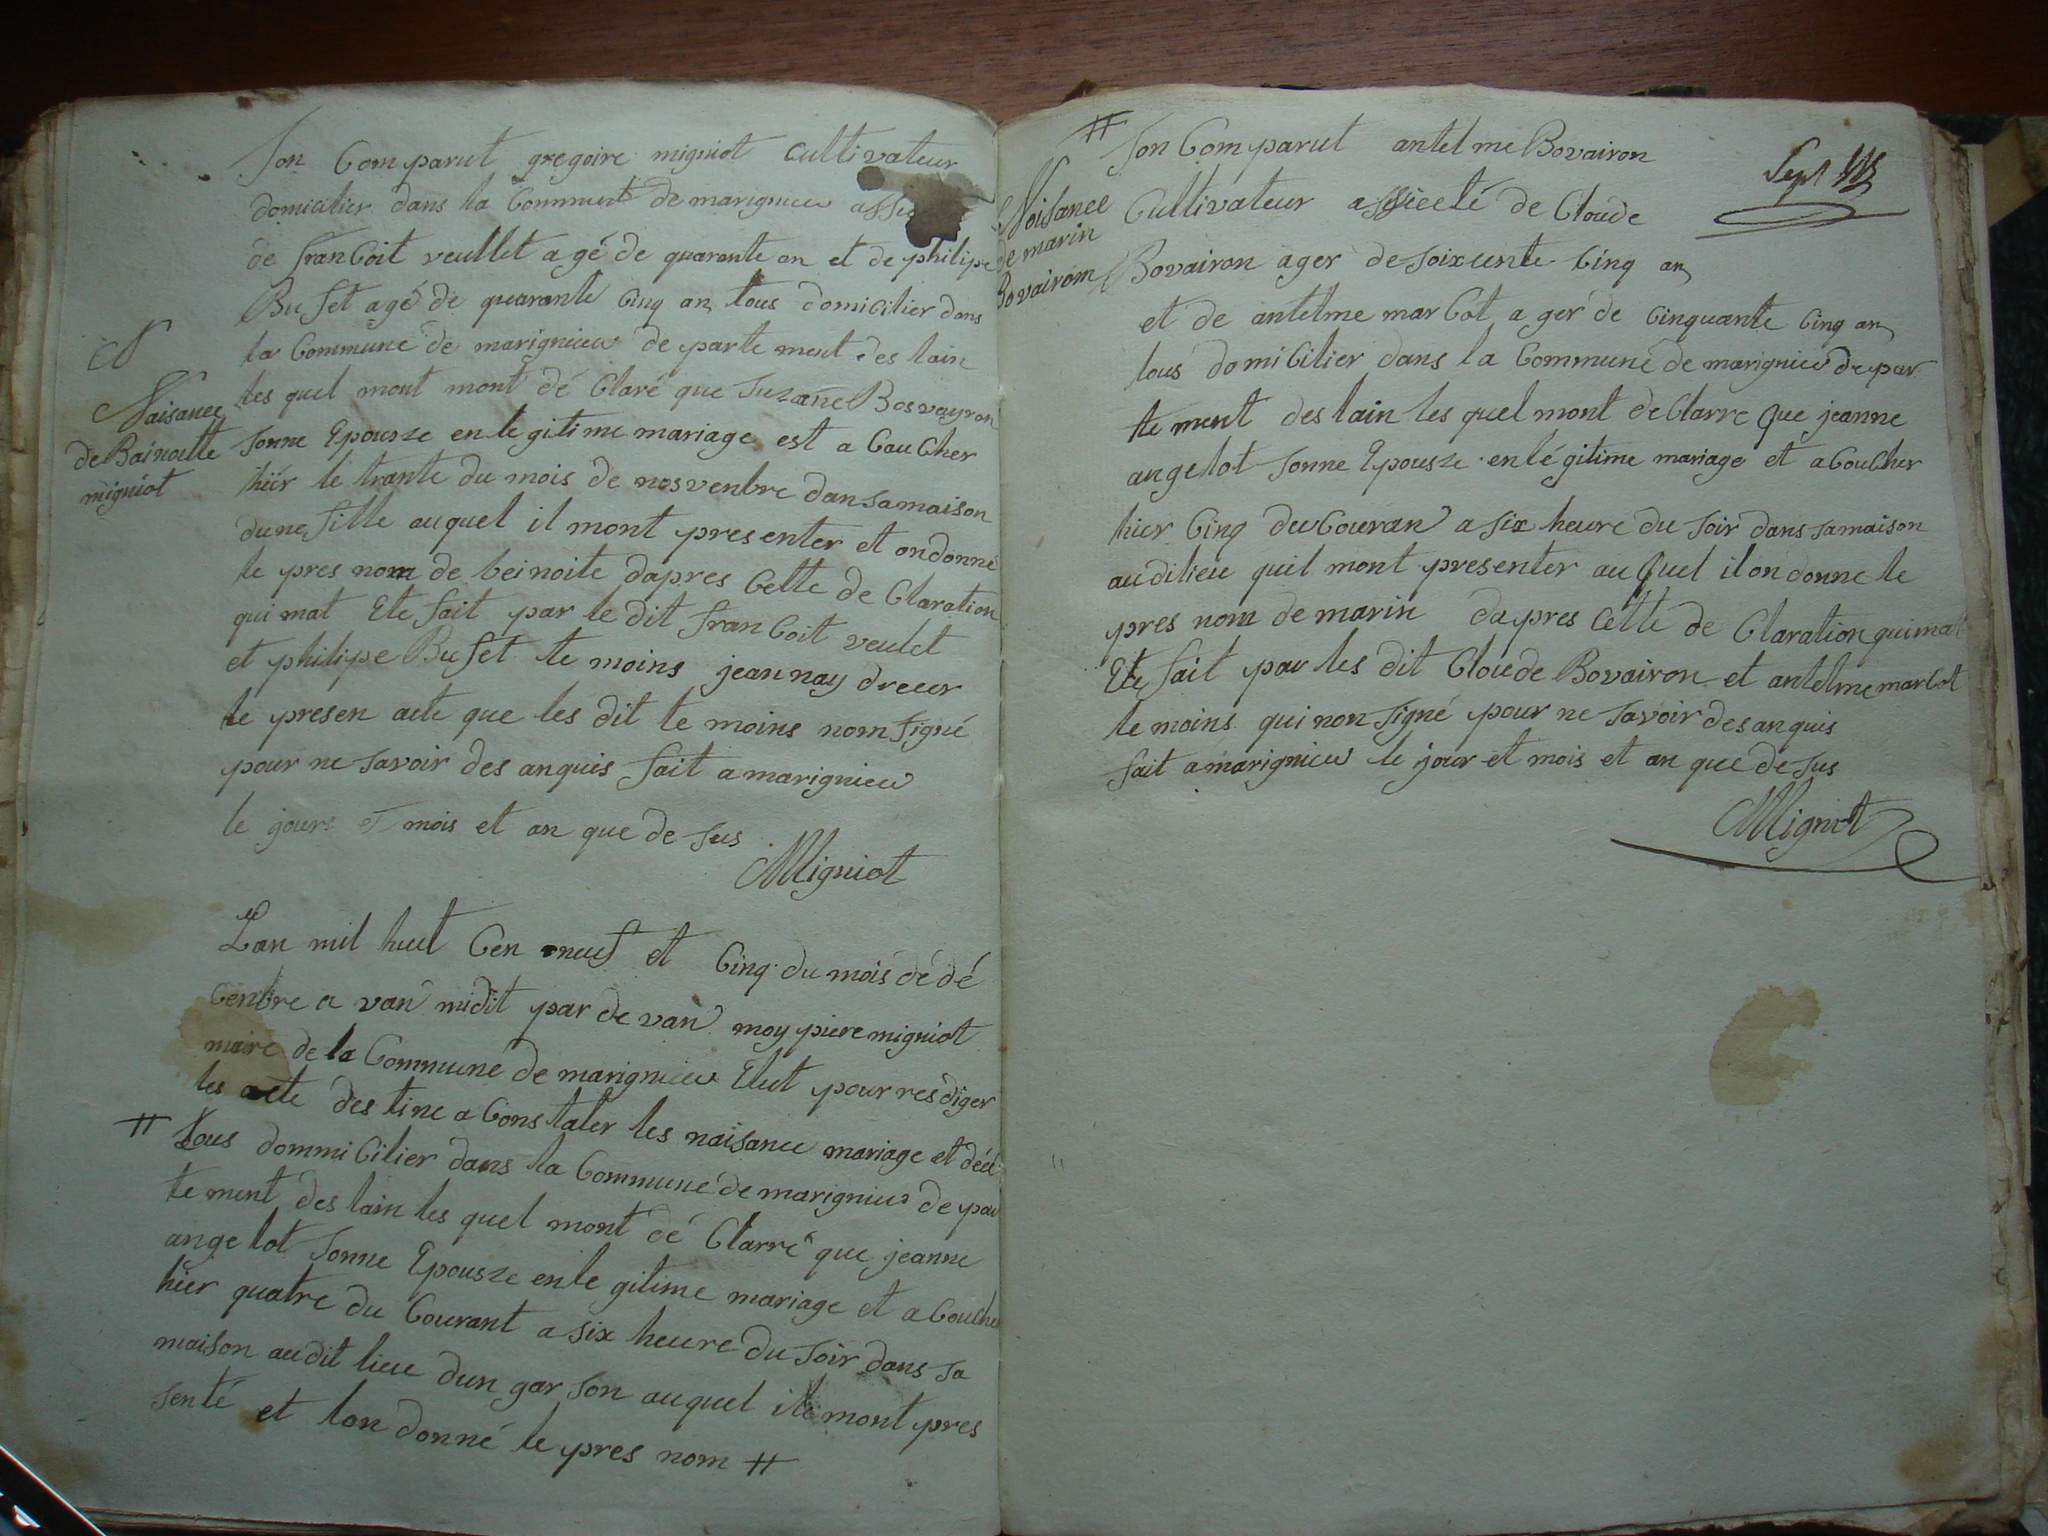 Son Comparut gregoire migniot Cultivateur
domicilier dans la Commune de marignieu assi
de franCoit veullet agé de quarante an et de philipe
Bufet agé de quarante Cinq an tous domicilier dans
la Commune de marignieu de parte ment des lain
les quel mont mont dé Claré que Suzane Bosvayron
Naisance
de Bainoitte
migniot
Sonne Epousze en le gitime mariage est a CouCher
hiér le trante du mois de nosvenbre dan sa maison
dune fille auquel il mont pres enter et on donné
le pres nom de beinoite dapres Cette de Claration
qui mat Ete fait par le dit franCoit veulet
et philipe Bufet te moins jean nay dreur
le presen acte que les dit te moins nom signé
pour ne savoir des anquis fait a marignieu
le jours et mois et an que de sus
Migniot
Lan mil huit Cen neuf et Cinq du mois dé dé
Cenbre a van midit par de van moy piere migniot
maire de la Commune de marignieu Elut pour res diger
les acte des tine a Cons tater les naisance mariage et décé
# Tous dommiCilier dans la Commune de marignieu de par
te ment des lain les quel mont dé Clarré que jeanne
angelot Sonne Epousze en le gitime mariage et a Couche
hier quatre du Courant a six heure du soir dans sa
maison au dit lieu dun gar son auquel ile mont pres
senté et lon donné le pres nom #
# Son Comparut antelme Bovairon
Sept
Noisance
de marin
Bovairom
Cultivateur assiceté de Cloude
Bovairon ager de soixente Cinq an
et de antelme marCot a ger de Cinquante Cinq an
tous domiCilier dans la Commune de marignieu de par
te ment des lain les quel mont de Clarre que jeanne
angelot Sonne Epousze en lé gitime mariage et a CouCher
hier Cinq du Couran a six heure du soir dans sa maison
au dilieu quil mont presenter au quel il on donne le
pres nom de marin dapres Cette de Claration qui mat
Ete fait par les dit Cloude Bovairon et antelme marCot
te moins qui non signé pour ne savoir des anquis
fait a marignieu le jour et mois et an que de sus
Migniot